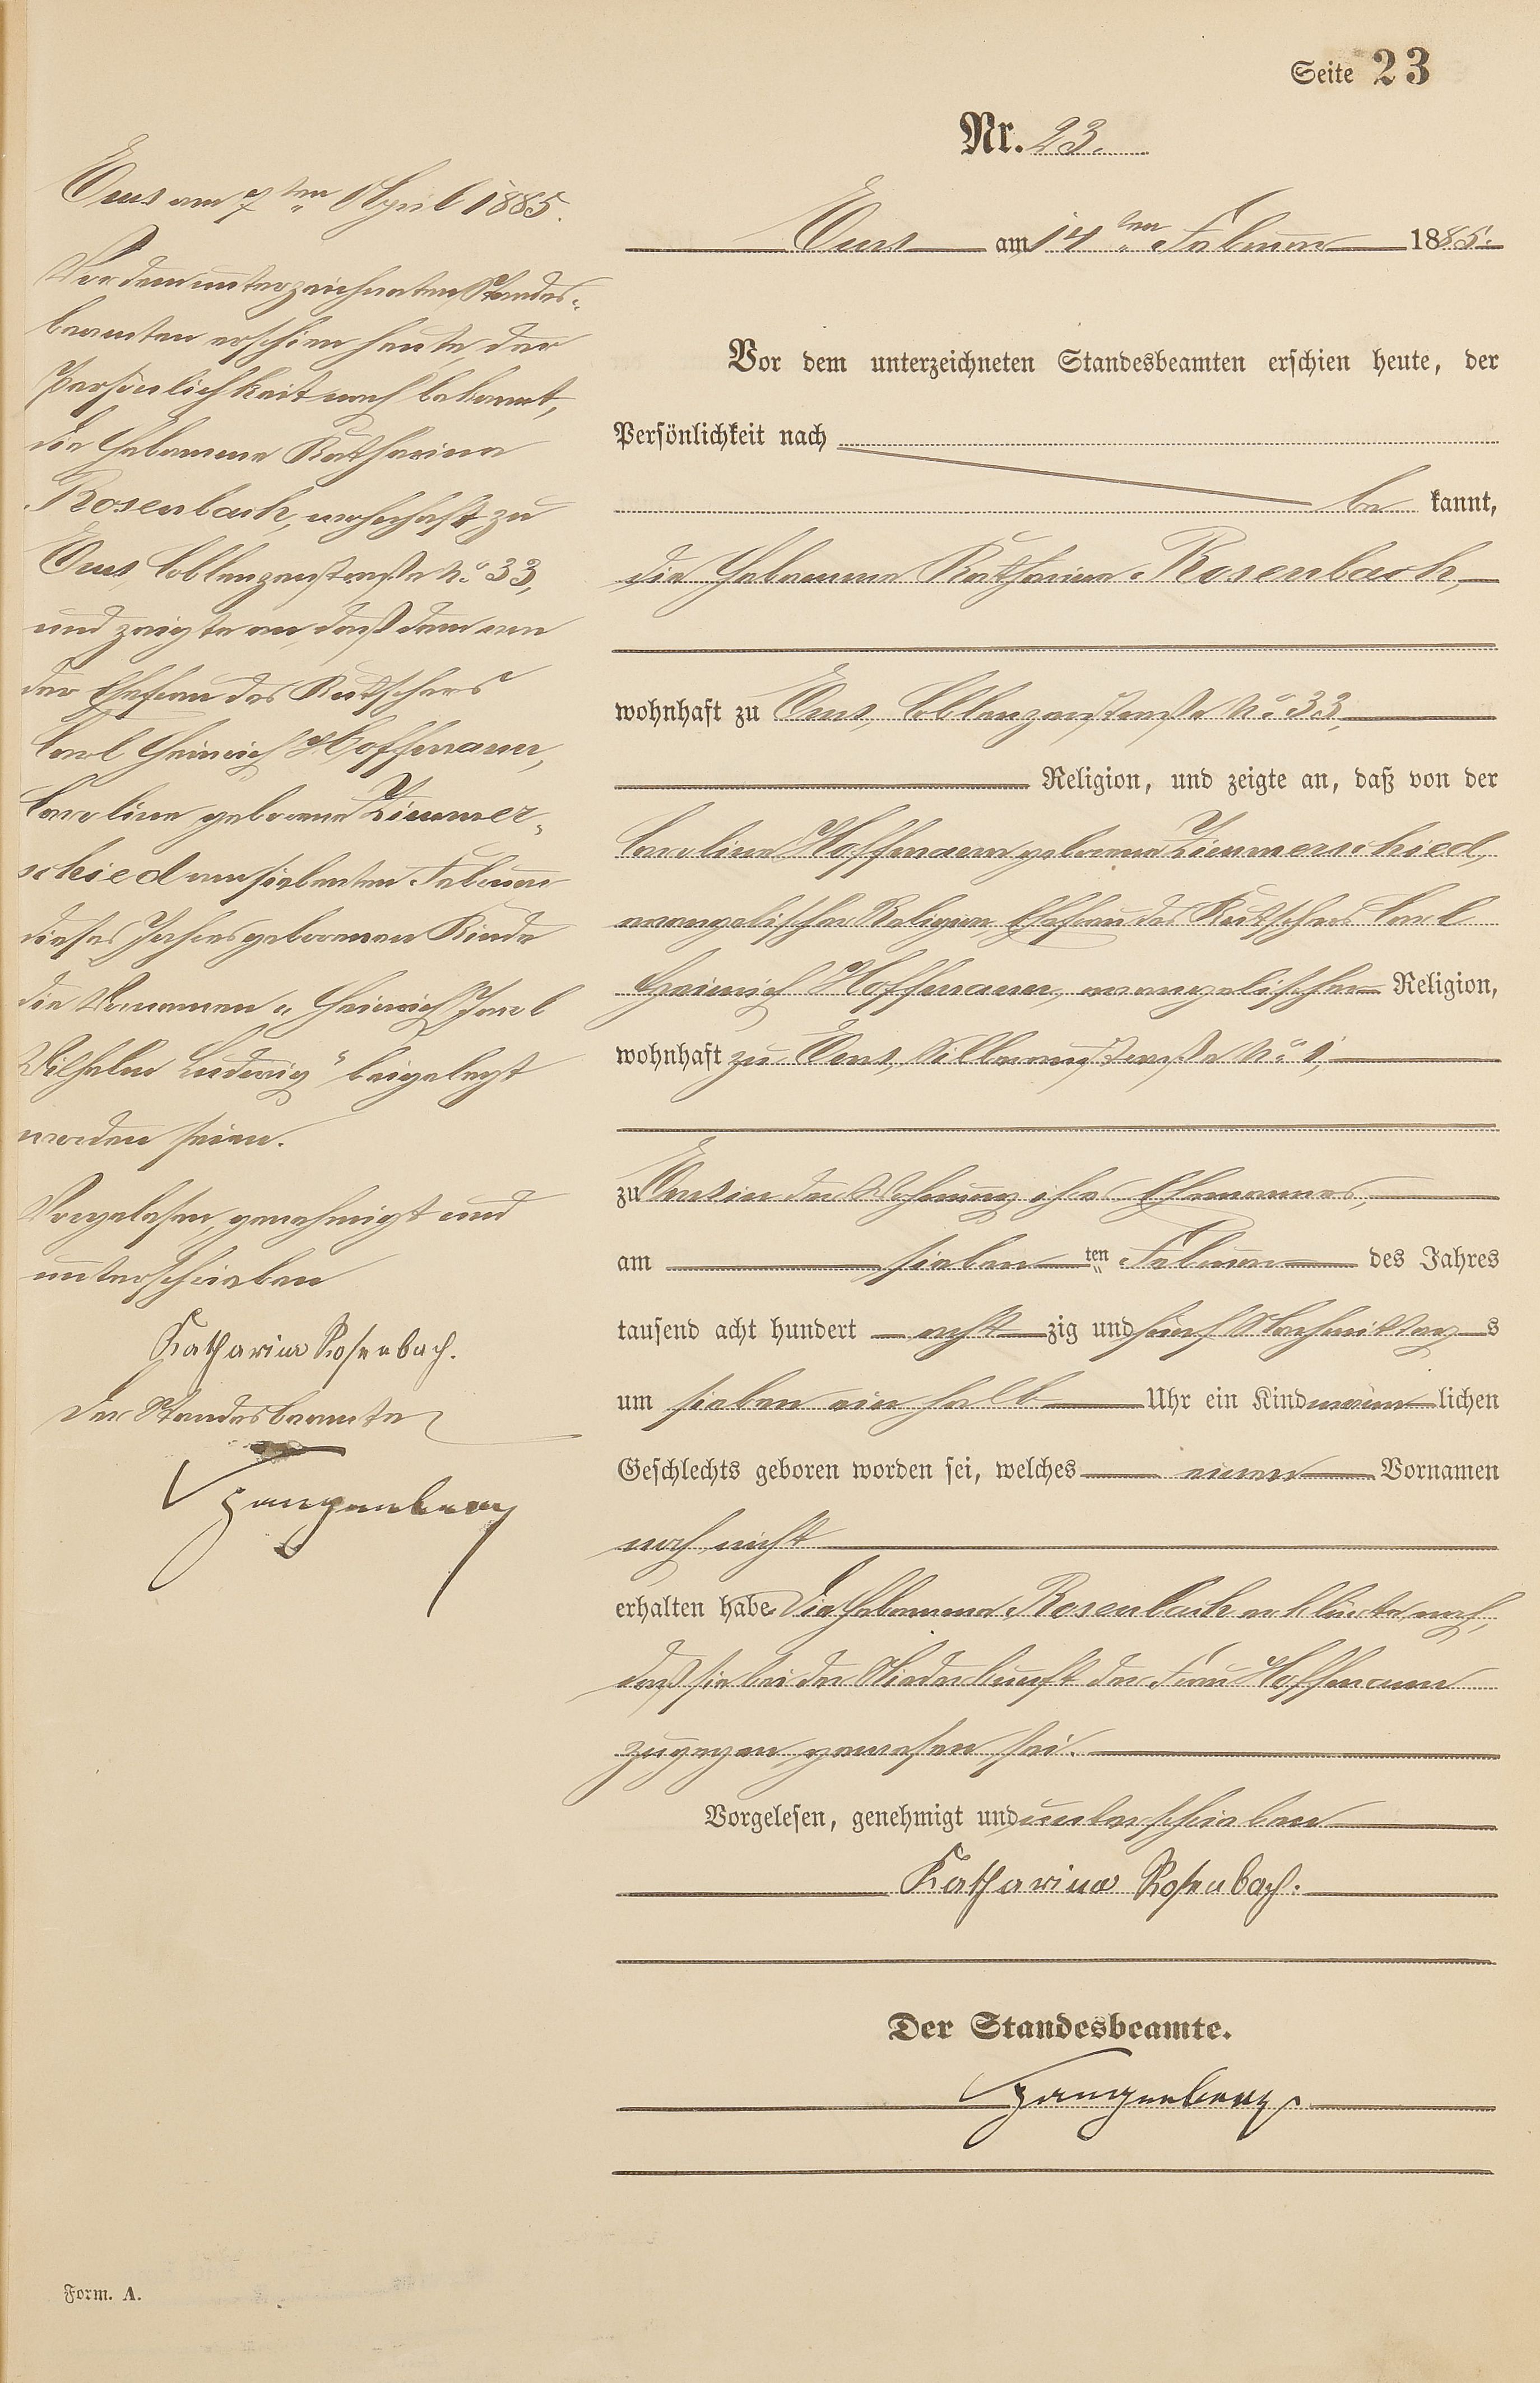 Seite 23
Nr. 23.
Ems am 14ten Februar 1885.
Vor dem unterzeichneten Standesbeamten erschien heute, der
Persönlichkeit nach
be kannt,
die Hebamme Katharina Rosenbach,
wohnhaft zu Ems, Coblenzerstraße No. 33,
Religion, und zeigte an, daß von der
Caroline Hoffmann geborene Zimmerschied,
evangelischer Religion, Ehefrau des Kutschers Carl
Heinrich Hoffmann, evangelischer Religion,
wohnhaft zu Ems, Silberaustraße No. 1,
zu Ems in der Wohnung ihres Ehemannes,
am sieben ten Februar des Jahres
tausend acht hundert acht zig und fünf Nachmittag s
um sieben ein halb Uhr ein Kind männ lichen
Geschlechts geboren worden sei, welches einen Vornamen
noch nicht
erhalten habe. Die Hebamme Rosenbach erklärte noch,
daß sie bei der Niederkunft der Frau Hoffmann
zugegen gewesen sei.
Vorgelesen, genehmigt und unterschrieben
Katharina Rosenbach.
Der Standesbeamte.
Spangenberg
Ems am 7ten April 1885.
Vor dem unterzeichneten Standes-
beamten erschien heute, der
Persönlichkeit nach bekannt,
die Hebamme Katharina
Rosenbach, wohnhaft zu
Ems, Coblenzerstraße No. 33,
und zeigte an, daß dem von
der Ehefrau des Kutschers
Carl Heinrich Hoffmann,
Caroline geborene Zimmer-
schied am siebenten Februar
dieses Jahres geborenen Kinde
die Vornamen „Heinrich Jacob
Wilhelm Ludwig" beigelegt
worden seien.
Vorgelesen, genehmigt und
unterschrieben
Katharina Rosenbach.
Der Standesbeamte
Spangenberg
Form. A.